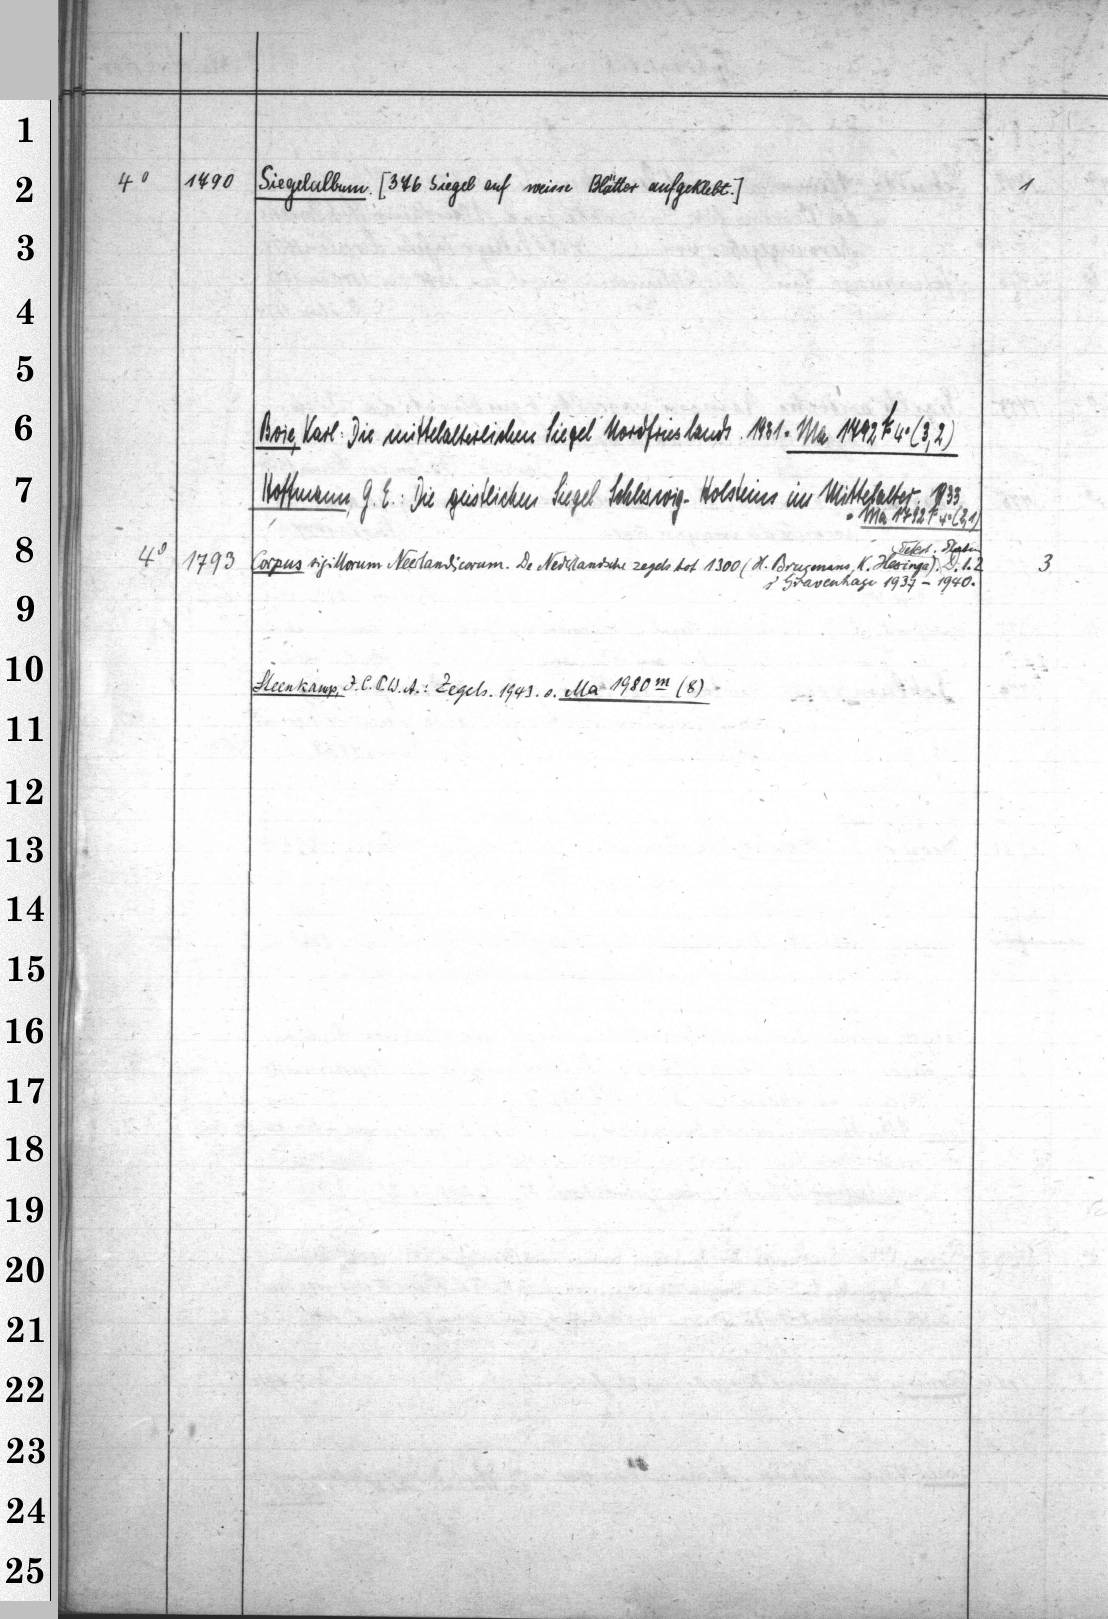 1
2 4° 1790 Siegelalbum. [376 Siegel auf weisse Blätter aufgeklebt.] 1
3
4
5
6 Boie, Karl: Die mittelalterlichen Siegel Nordfrieslands. 1931. Ma 1792 4° (3,2)
7 Hoffmann, G. E.: Die geistlichen Siegel Schleswig-Holsteins im Mittelalter. 1933
• Ma 1792 4° (3,1)
Tekst.
8 4° 1793 Corpus sigillorum Neerlandicorum. De Nederlandsche zegels tot 1300 (H. Brugmans, K. Heeringa). D. 1. 2 3
s'Gravenhage 1937 - 1940.
9
10 Steenkamp, J. C. P. W. A.: Zegels. 1943. s. Ma 1980 m (8)
11
12
13
14
15
16
17
18
19
20
21
22
23
24
25